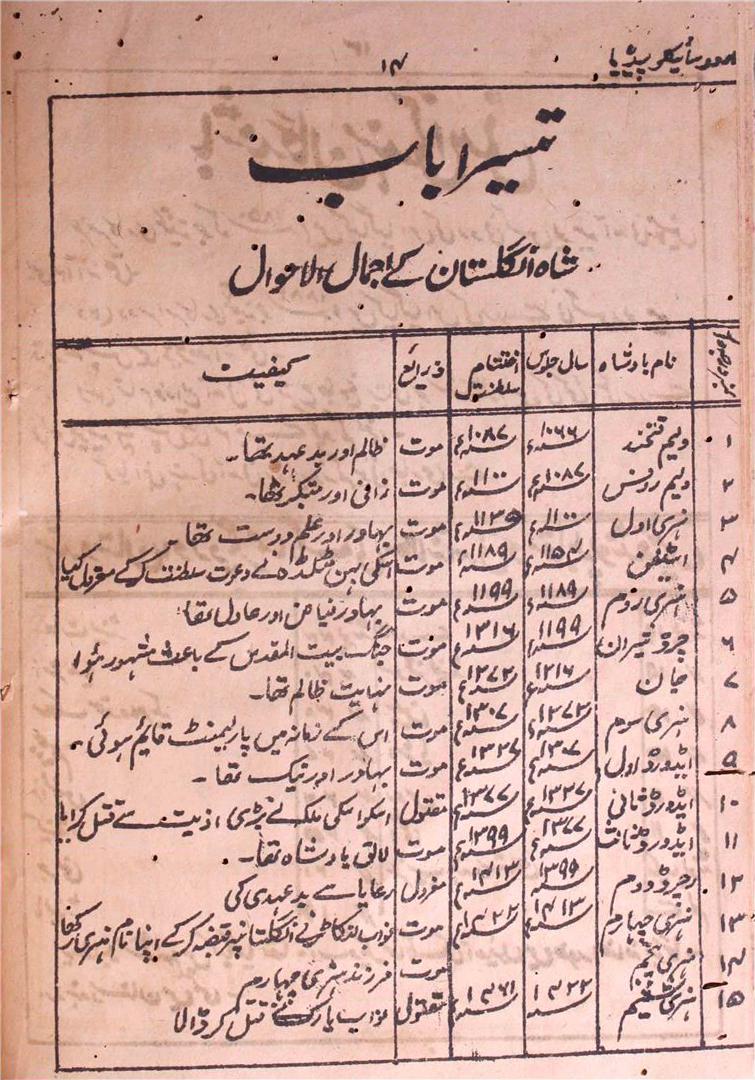 اردو سائیکلو پیڈیا
۱۴
تیسرا باب
شاہ انگلستان کے اجمال الاحوال
نام بادشاہ سال جلوس اختتام سلطنت ذرائع کیفیت
۱ ولیم فتحمند ۱۰۶۶ء ۱۰۸۷ء موت ظالم اور بد عہد تھا۔
۲ ولیم روفس ۱۰۸۷ء ۱۱۰۰ء موت زانی اور متکبر تھا۔
۳ ہنری اول ۱۱۰۰ء ۱۱۳۵ء موت بہادر اور علم دوست تھا
۴ اسٹیفن ۱۱۵۴ء ۱۱۸۹ء موت اسکی بہن مٹلڈا نے دعوت سلطنت کر کے معزول کیا
۵ ہنری دوم ۱۱۸۹ء ۱۱۹۹ء موت بہادر فیاض اور عادل تھا
۶ رچرڈ شیردل ۱۱۹۹ء ۱۲۱۶ء موت جنگ بیت المقدس کے باعث مشہور ہوا
۷ جان ۱۲۱۶ء ۱۲۷۲ء موت نہایت ظالم تھا۔
۸ ہنری سوم ۱۲۷۲ء ۱۳۰۷ء موت اس کے زمانہ میں پارلیمنٹ قایم ہوئی۔
۹ ایڈورڈ اول ۱۳۰۷ء ۱۳۲۷ء موت بہادر اور نیک تھا۔
۱۰ ایڈورڈ ثانی ۱۳۲۷ء ۱۳۷۷ء مقتول اسکو اسکی ملکہ نے بڑی اذیت سے قتل کرایا
۱۱ ایڈورڈ ثالث ۱۳۷۷ء ۱۳۹۹ء موت لائق بادشاہ تھا۔
۱۲ رچرڈ دوم ۱۳۹۹ء ۱۴۱۳ء معزول رعایا سے بد عہدی کی
۱۳ ہنری چہارم ۱۴۱۳ء ۱۴۲۲ء موت نواب لنکاسٹر نے انگلستان پر قبضہ کر کے اپنا نام ہنری رکھا
۱۴ ہنری پنجم موت فرزند ہنری چہارم
۱۵ ہنری ششم ۱۴۲۲ء ۱۴۶۱ء مقتول نواب یارک نے قتل کر ڈالا